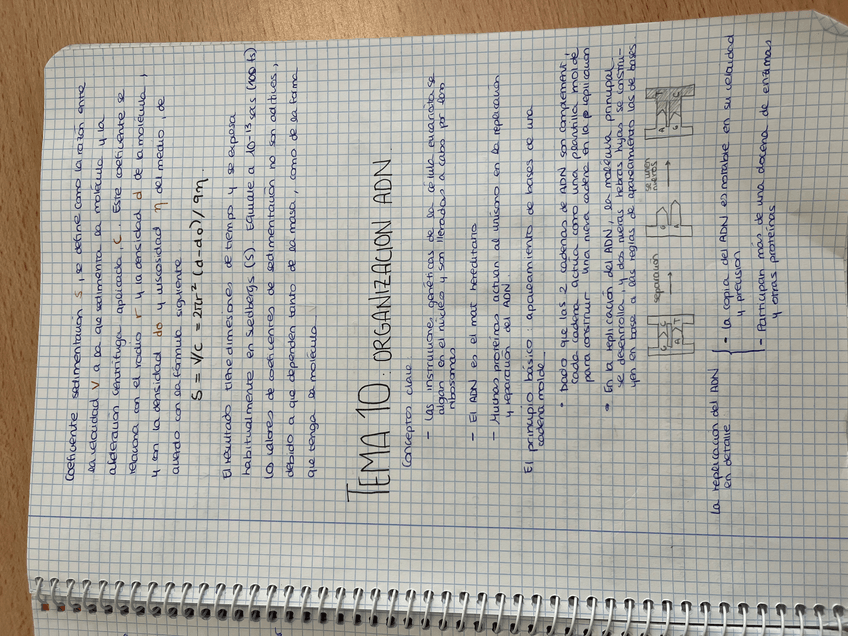 Coeficiente sedimentación s, se define como la razón entre
la velocidad v a la que sedimenta la molécula y la
aceleración centrífuga aplicada, C. Este coeficiente se
relaciona con el radio r y la densidad d de la molécula,
y con la densidad do y viscosidad η del medio, de
acuerdo con la fórmula siguiente
S = V/C = 2πr² (d-do)/9η.
El resultado tiene dimensiones de tiempo y se expresa
habitualmente en svedbergs (S). Equivale a 10⁻¹³ sgs (100 fs)
Los valores de coeficientes de sedimentación no son aditivos,
debido a que dependen tanto de la masa, como de la forma
que tenga la molécula
TEMA 10: ORGANIZACION ADN
Conceptos clave
- Las instrucciones genéticas de la célula eucariota se
alojan en el núcleo y son llevadas a cabo por los
ribosomas
- El ADN es el mat hereditario
- Muchas proteínas actúan al unísono en la replicación
y reparación del ADN.
El principio básico: apareamiento de bases de una
cadena molde
• Dado que las 2 cadenas de ADN son complement,
cada cadena actúa como una plantilla molde
para construir una nueva cadena en la replicación
• En la replicación del ADN, la molécula principal
se desenrolla, y dos nuevas hebras hijas se constru-
yen en base a las reglas de apareamiento de bases.
separación
se unen
nuevos
G C
A T
G
A
A T
G C
La replicación del ADN
en detalle
- La copia del ADN es notable en su velocidad
y precisión
- Participan más de una docena de enzimas
y otras proteínas